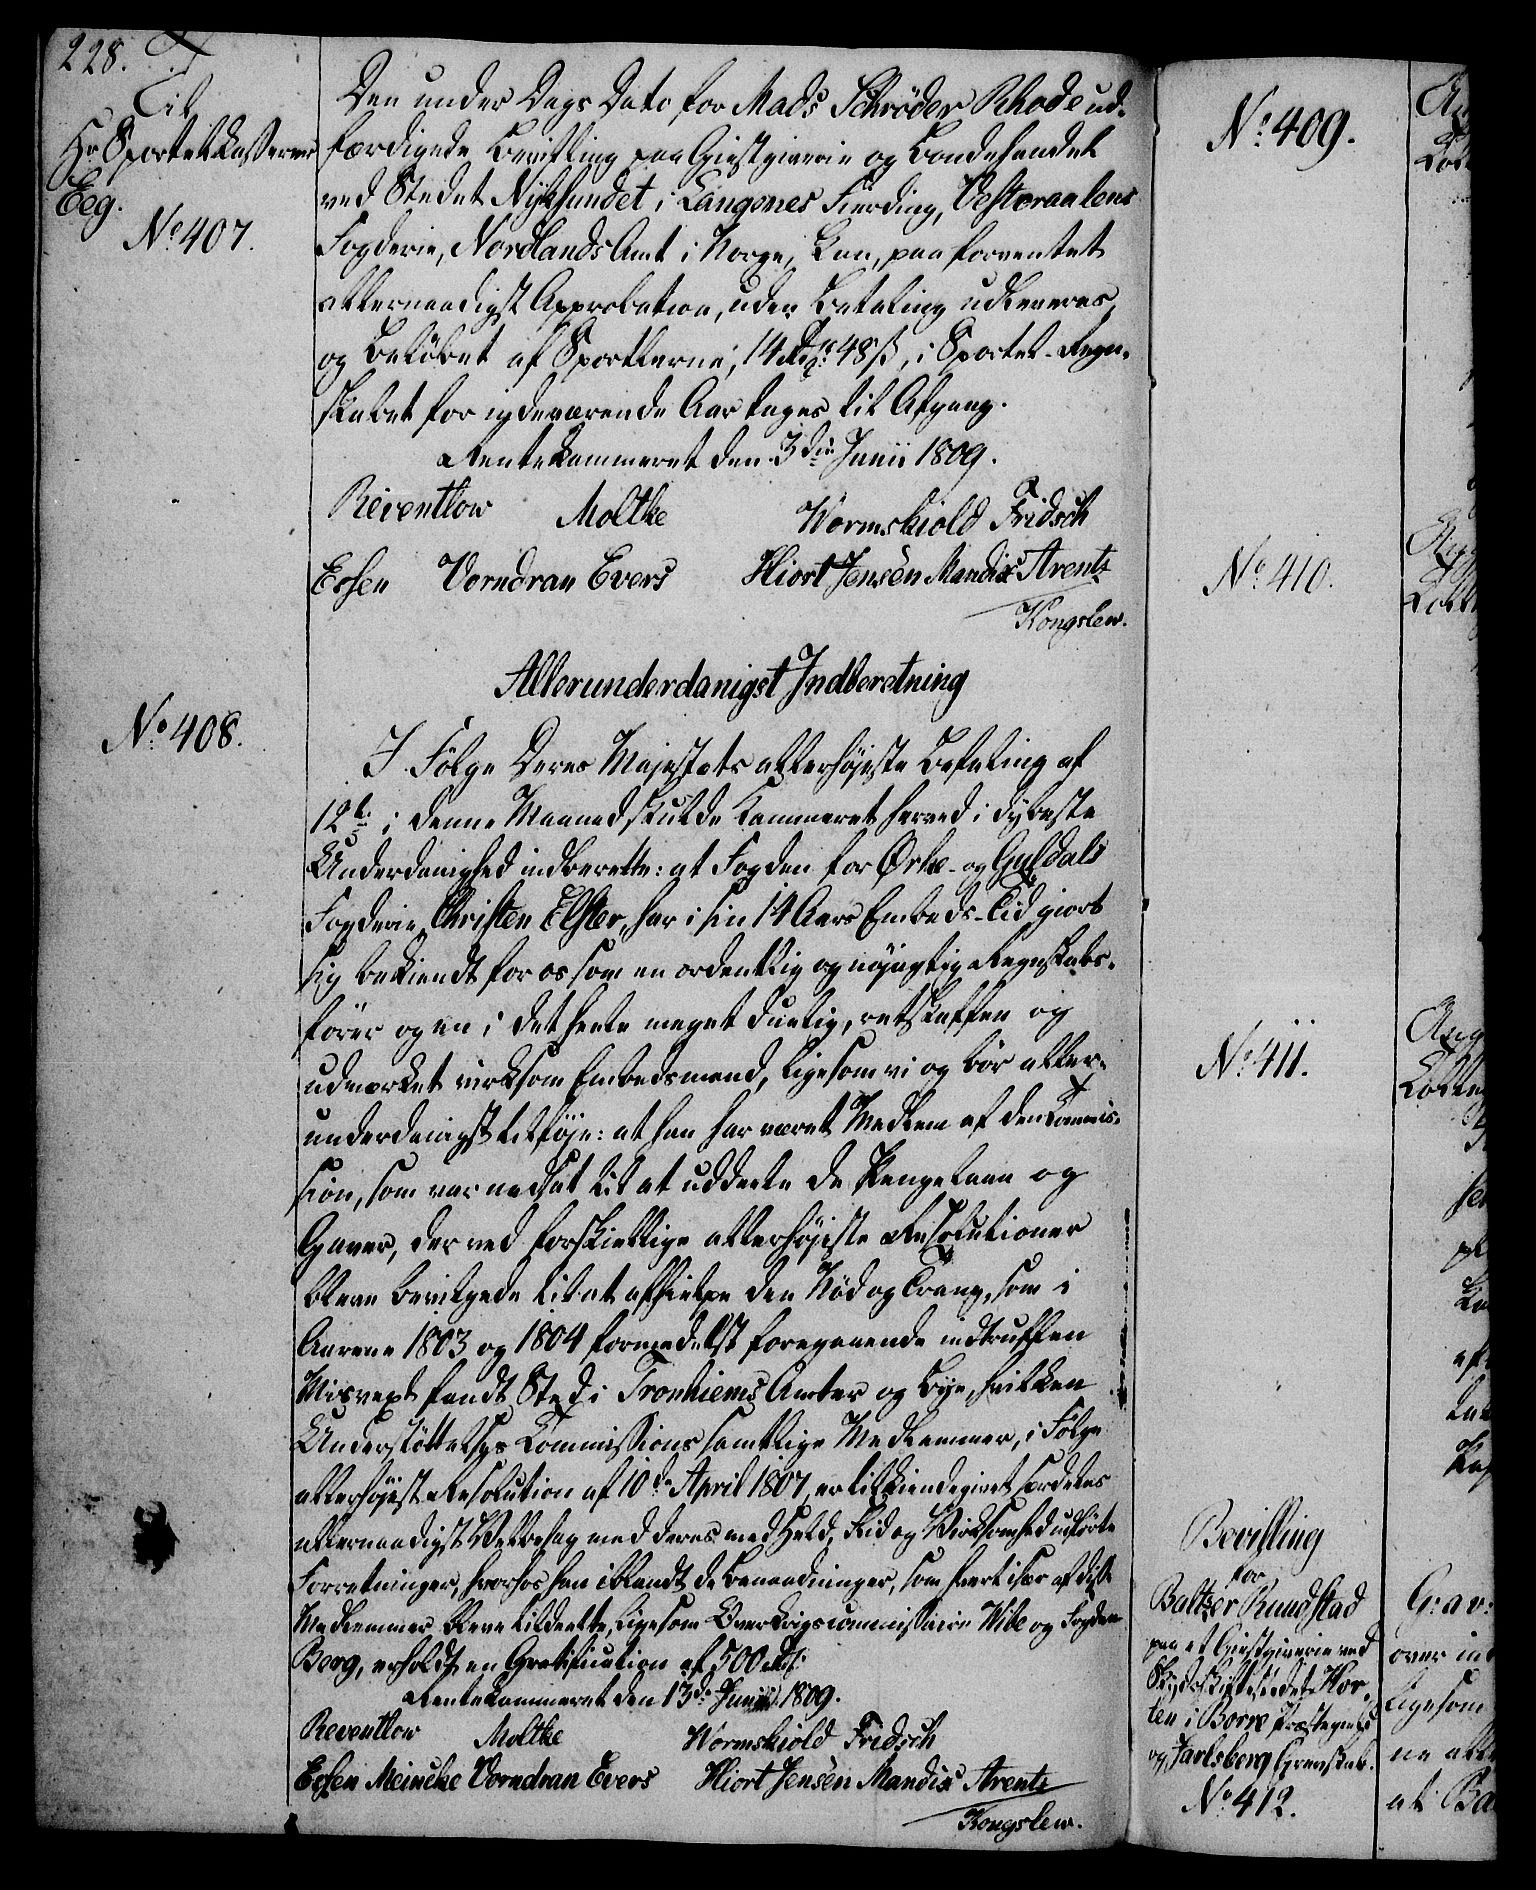 228.
Til
Hr Sportelkasserer
Eeg.
No 407.
Den under Dags Dato for Mads Schrøder Rhode ud-
færdigede Bevilling paa Giestgiverie og Bondehandel
ved Stedet Nyksundet i Langenes Fierding, Vesteraalens
Fogderie, Nordlands Amt i Norge, kan, paa forventet
allernaadigst Approbation, uden Betaling udleveres,
og Beløbet af Sportlerne, 14 Rdr 48 ß, i Sportel-Regn-
skabet for igdeværende Aar tages til Afgang.
Rentekammeret den 3die Junii 1809.
Reventlow Moltke Wormskiold Fridsch
Essen Vorndran Evers Hiort Jensen Mandix Arentz
Kongslew.
Allerunderdanigst Indberetning
No 408.
I Følge Deres Majestets allerhøjeste Befaling af
12te i denne Maaned skulde Kammeret herved i dybeste
Underdanighed indberette: at Fogden for Ørke- og Guldals
Fogderie, Christen Elster, har i sin 14 Aars Embeds-Tid giort
sig bekiendt for os som en ordentlig og nøjagtig Regnskabs-
fører og en i det heele meget duelig, retskaffen og
udmærket virksom Embedsmand, ligesom vi og bør aller-
underdanigst tilføje: at han har været Medlem af den Commis-
sion, som var nedsat til at uddeele de Pengelaan og
Gaver, der ved forskiellige allerhøjeste Resolutioner
bleve bevilgede til at afhielpe den Nød og Trang, som i
Aarene 1803 og 1804 formedelst foregaaende indtruffen
Misvext fandt Sted i Tronhiems Amter og Bye, hvilken
Understøttelses Commissions samtlige Medlemmer, i Følge
allerhøjest Resolution af 10de April 1807, er tilkiendegivet særdeles
allernaadigst Velbehag med deres med Held, Flid og Virksomhed udførte
Forretninger, hvorhos han iblandt de Benaadninger, som hvert især af disse
Medlemmer bleve tildeelte, ligesom Overkrigscommissaire Wibe og Fogden
Berg, erholdt en Gratification af 500 Rdr.
Rentekammeret den 13de Junii 1809.
Reventlow Moltke Wormskiold Fridsch
Essen Meincke Vorndran Evers Hiort Jensen Mandix Arentz
Kongslew.
No 409.
No 410.
No 411.
Bevilling
for
Baltzer Rundstad
paa et Giestgiverie ved
Skydsskiftestedet Hor-
ten i Borre Præstegield
og Jarlsberg Grevskab.
No 412.